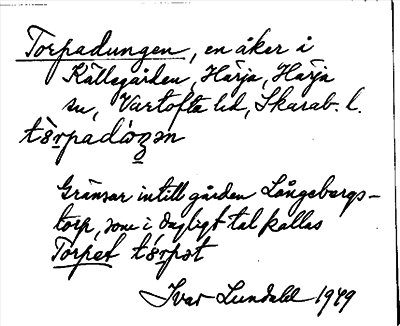 Torpadungen, en åker i
Källegården, Härja, Härja
sn, Vartofta hd, Skarab. l.
tèrpadòŋən
Gränsar intill gården Långebergs-
torp, som i dagligt tal kallas
Torpet térpət
Ivar Lundahl 1949